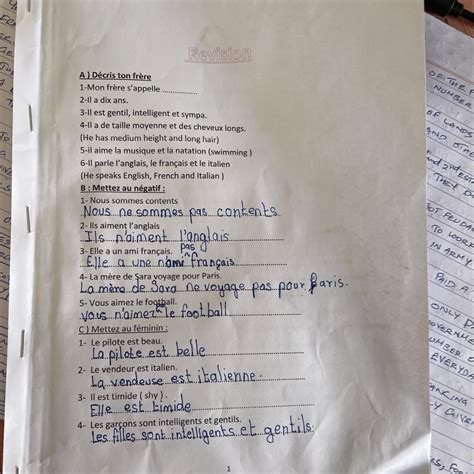 Revision
A ) Décris ton frère
1-Mon frère s'appelle ................
2-Il a dix ans.
3-Il est gentil, intelligent et sympa.
4-Il a de taille moyenne et des cheveux longs.
(He has medium height and long hair)
5-il aime la musique et la natation (swimming )
6-Il parle l'anglais, le français et le italien
(He speaks English, French and Italian )
B : Mettez au négatif :
1- Nous sommes contents
Nous ne sommes pas contents
2- Ils aiment l'anglais
Ils n'aiment l'anglais
pas
3- Elle a un ami français.
Elle a une n'ami français
4- La mère de Sara voyage pour Paris.
La mère de Sara ne voyage pas pour Paris.
5- Vous aimez le football.
Vous n'aimez le football
C ) Mettez au féminin :
1- Le pilote est beau.
La pilote est belle
2- Le vendeur est italien.
La vendeuse est italienne.
3- Il est timide ( shy ) .
Elle est timide
4- Les garçons sont intelligents et gentils.
Les filles sont intelligents et gentils
1
OF THE
NUMBER
OF LAND
AND OTHE
and 2nd EST
THEY D
NOT FEUDA
TO LOO
IN ARMY
PAID A
ONLY
GOVERNME
NUMBER
EVERYDA